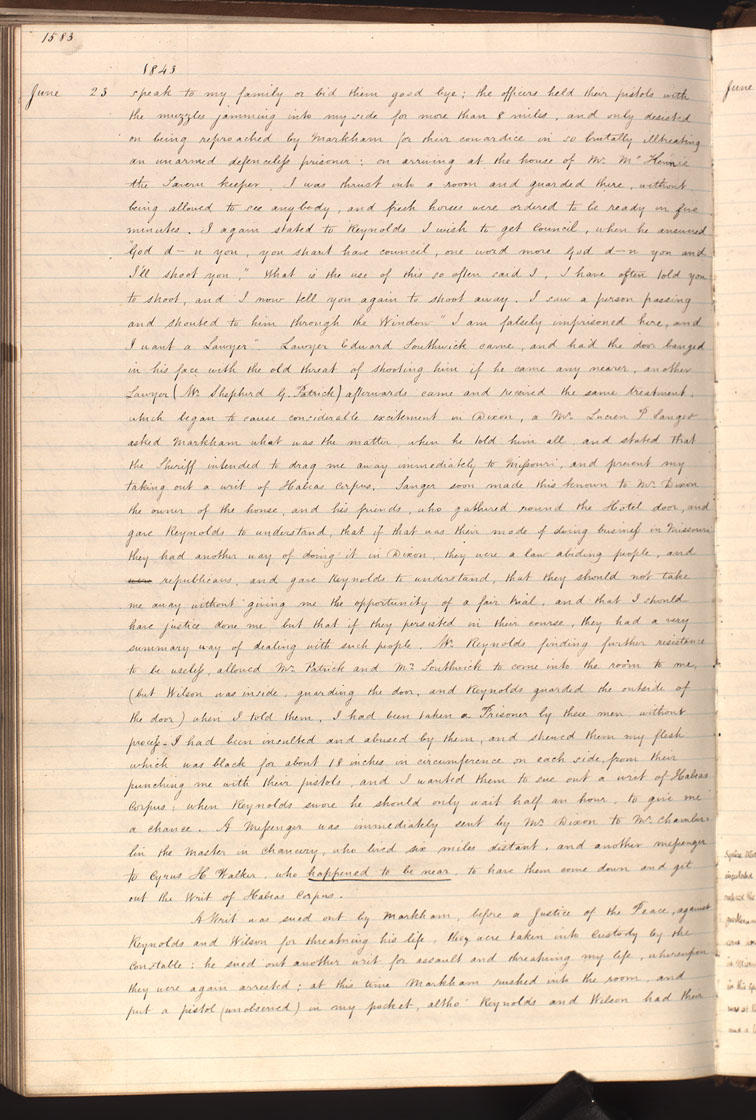 1583
1843
June 23 speak to my family or bid them good bye; the officers held their pistols with
the muzzles jamming into my side for more than 8 miles, and only desisted
on being reproached by Markham for their cowardice in so brutally illtreating
an unarmed defenceless prisoner; on arriving at the house of Mr. McKennie
the Tavern keeper, I was thrust into a room and guarded there, without
being allowed to see anybody, and fresh horses were ordered to be ready in five
minutes. I again stated to Reynolds I wish to get Council, when he answered
God d—n you, you shant have council, one word more God d—n you and
I'll shoot you." What is the use of this so often said I, I have often told you
to shoot, and I now tell you again to shoot away. I saw a person passing
and shouted to him through the Window "I am falsely imprisoned here, and
I want a Lawyer" Lawyer Edward Southwick came, and had the door banged
in his face with the old threat of shooting him if he came any nearer, another
Lawyer (Mr Shepherd G. Patrick) afterwards came and received the same treatment,
which began to cause considerable excitement in Dixon, a Mr. Lucien P. Sanger
asked Markham what was the matter, when he told him all, and stated that
the Sheriff intended to drag me away immediately to Missouri, and prevent my
taking out a writ of Habeas Corpus. Sanger soon made this known to Mr Dixon
the owner of the house, and his friends, who gathered round the Hotel door, and
gave Reynolds to understand, that if that was their mode of doing business in Missouri
they had another way of doing it in Dixon, they were a law abiding people, and
were republicans, and gave Reynolds to understand, that they should not take
me away without giving me the opportunity of a fair trial, and that I should
have justice done me, but that if they persisted in their course, they had a very
summary way of dealing with such people. Mr Reynolds finding further resistance
to be useless, allowed Mr. Patrick and Mr. Southwick to come into the room to me,
(but Wilson was inside, guarding the door, and Reynolds guarded the outside of
the door) when I told them, I had been taken a Prisoner by these men without
process – I had been insulted and abused by them, and shewed them my flesh
which was black for about 18 inches in circumference on each side, from their
punching me with their pistols, and I wanted them to sue out a writ of Habeas
Corpus, when Reynolds swore he should only wait half an hour, to give me
a chance. A Messenger was immediately sent by Mr Dixon to Mr. Chamber-
lin the Master in Chancery, who lived six miles distant, and another messenger
to Cyrus H Walker, who happened to be near, to have them come down and get
out the Writ of Habeas Corpus.
A Writ was sued out by Markham, before a Justice of the Peace, against
Reynolds and Wilson for threatning his life, they are taken into Custody by the
Constable; he sued out another writ for assault and threatning my life, whereupon
they were again arrested; at this time Markham rushed into the room, and
put a pistol (unobserved) in my pocket, altho' Reynolds and Wilson had their
June